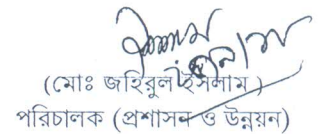 (মোঃ জহিরুল ইসলাম )
পরিচালক (প্রশাসন ও উন্নয়ন)